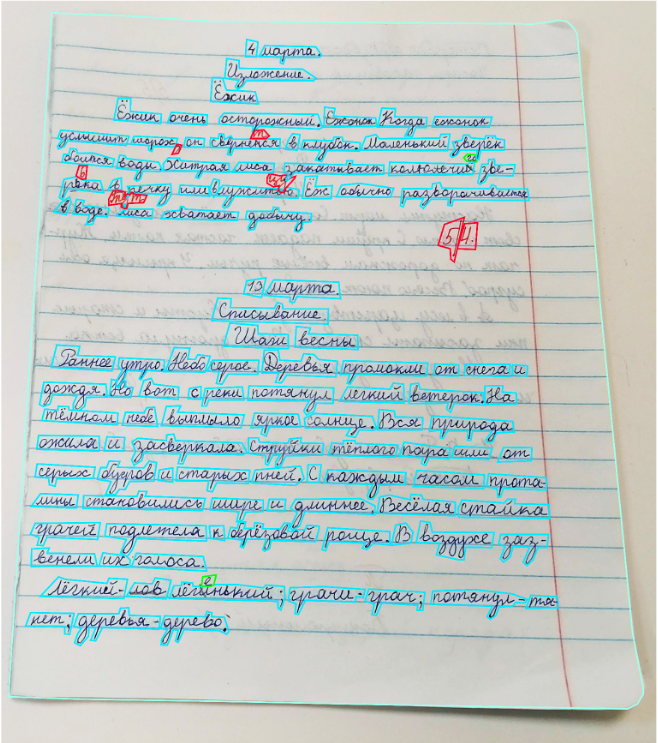 4 марта.
Изложение.
Ёжик
Ёжик очень осторожный. Ежонок Когда ежонок
услышит шорох, он свернёся в клубок. Маленький зверёк
боится воды. Хитрая лиса закатывает колючего зве-
рька в речку или в лужу. Ёж обычно разворачивается
в воде. лиса хватает добычу.
5/4.
13 марта.
Списывание.
Шаги весны
Раннее утро. Небо серое. Деревья промокли от снега и
дождя. Но вот с реки потянул легкий ветерок. На
тёмном небе выплыло яркое солнце. Вся природа
ожила и засверкала. Струйки тёплого пара шли от
серых бугров и старых пней. С каждым часом прота-
лины становились шире и длиннее. Весёлая стайка
грачей подлетела к берёзовой роще. В воздухе заз-
венели их голоса.
лёгкий - лёгенький; грачи - грач; потянул - тя-
нет; деревья - дерево.